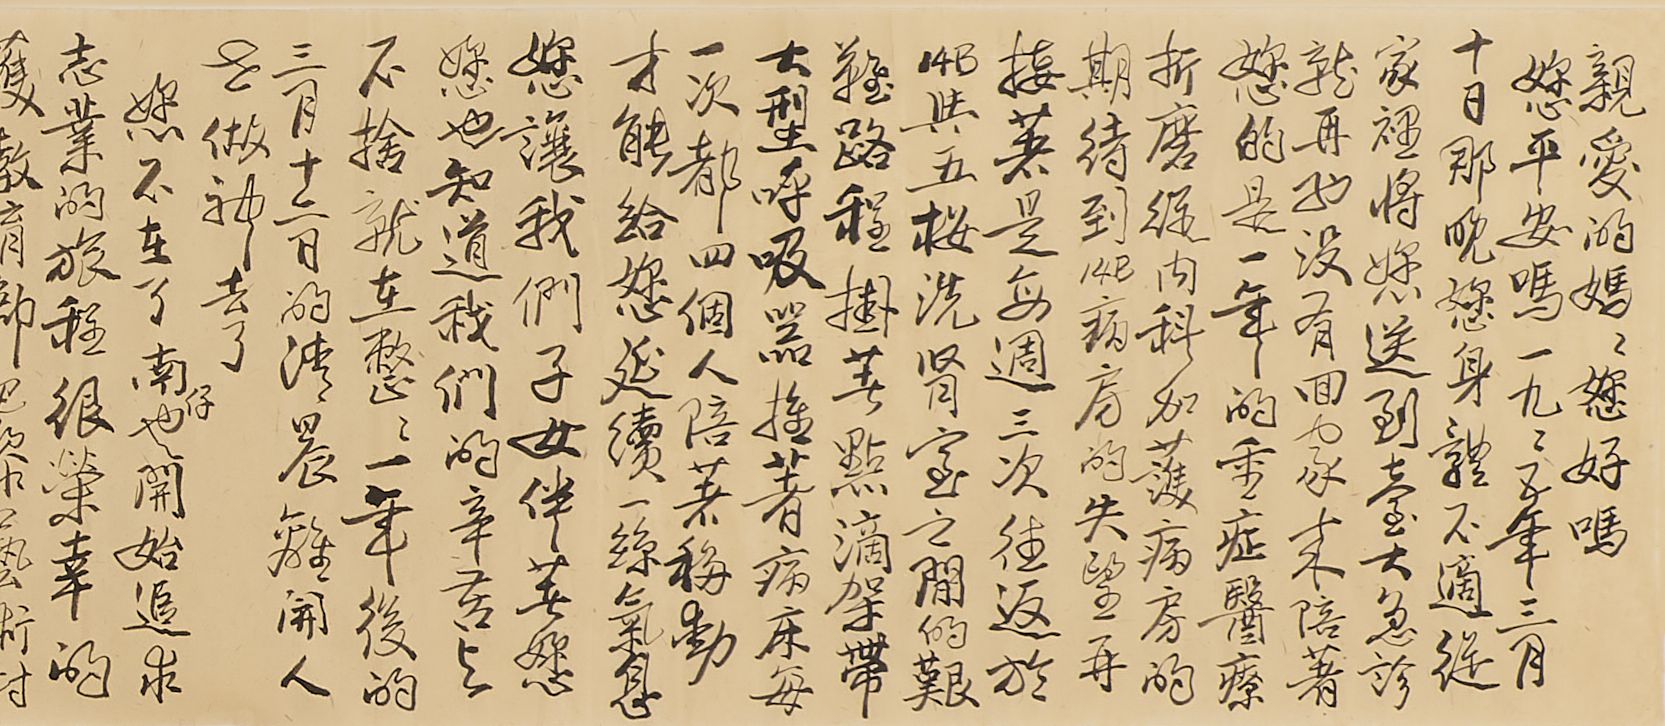 親愛的媽媽您好嗎
您平安嗎一九九五年三月
十日那晚您身體不適從
家裡將您送到臺大急診
就再也沒有回家來陪著
您的是一年的重症醫療
折磨從內科加護病房的
期待到14B病房的失望再
接著是每週三次往返於
14B與五樓洗腎室之間的艱
難路程掛著點滴架帶
大型呼吸器推著病床每
一次都四個人陪著移動
才能給您延續一絲氣息
您讓我們子女伴著您
您也知道我們的辛苦与
不捨就在整整一年後的
三月十二日的清晨離開人
世做神去了
您不在了南仔也開始追求
志業的旅程很榮幸的
獲教育部